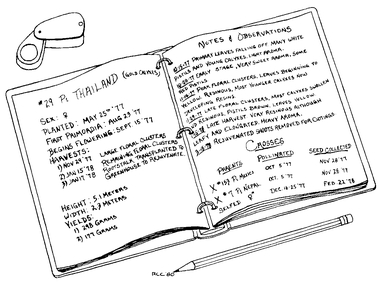 #29 P1 THAILAND (GOLD CALYXES)
SEX: ♀
PLANTED: MAY 25TH '77
FIRST PRIMORDIA: AUG 23 '77
BEGINS FLOWERING: SEPT 15 '77
HARVESTS:
1) NOV 29 '77 LARGE FLORAL CLUSTERS
2) JAN 15 '78 REMAINING FLORAL CLUSTERS
3) JAN 17 '78 ROOTSTALK TRANSPLANTED TO
GREENHOUSE TO REJUVENATE.
HEIGHT: 5.1 METERS
WIDTH: 2.7 METERS
YIELDS:
1) 298 GRAMS
2) 177 GRAMS
NOTES & OBSERVATIONS
PRIMARY LEAVES FALLING OFF MANY WHITE
PISTILS AND YOUNG CALYXES. LIGHT AROMA.
EARLY STAGE. VERY SWEET AROMA, SOME
RESINS.
PEAK FLORAL CLUSTERS. LEAVES BEGINNING TO
YELLOW. RESINOUS, MOST YOUNGER CALYXES NOW
LATE FLORAL CLUSTERS, MOST CALYXES SWOLLEN
AND RESINOUS. PISTILS BROWN. LEAVES YELLOW
LATE HARVEST VERY RESINOUS ALTHOUGH
LEAFY AND ELONGATED. HEAVY AROMA.
REJUVENATED SHOOTS REMOVED FOR CUTTINGS
CROSSES
PARENTS POLLINATED SEED COLLECTED
X #157 P1 MEXICO OCT 5 '77 NOV 28 '77
X #7 P1 NEPAL OCT 5 '77 NOV 25 '77
SELFED ♀ DEC 4-25 '77 FEB 22 '78